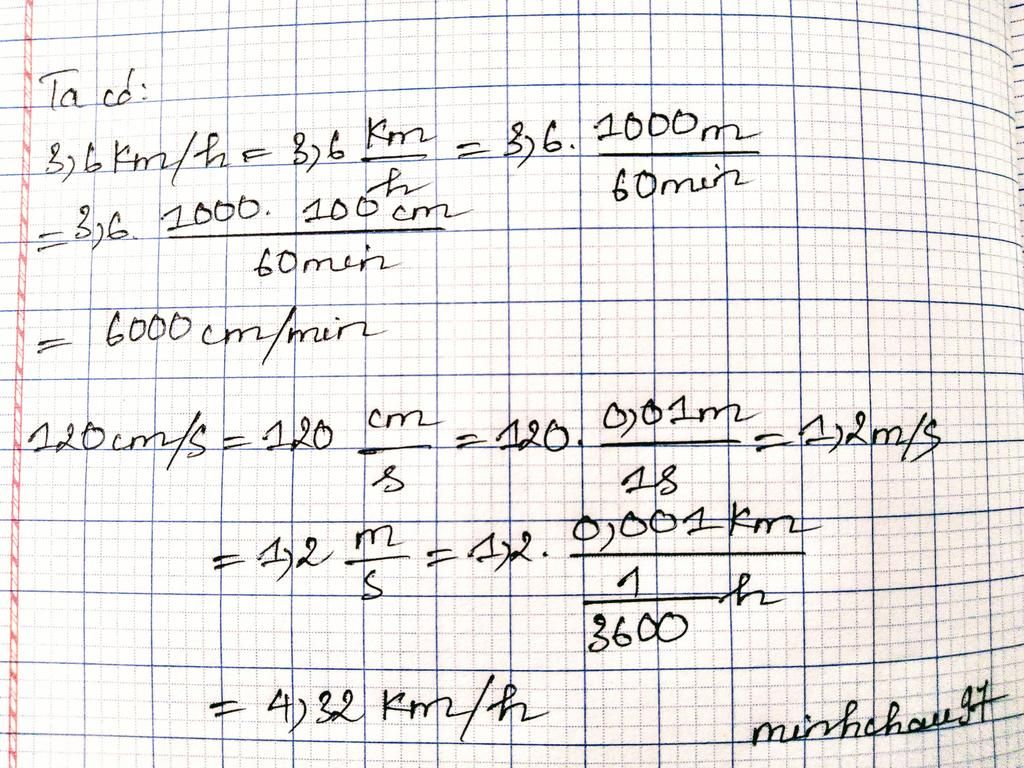 Ta có:
3,6 Km/h = 3,6 Km/h = 3,6. 1000m/60min
= 3,6. 1000. 100 cm/60min
= 6000 cm/min
120 cm/s = 120 cm/s = 120. 0,01m/1s = 1,2m/s
= 1,2 m/s = 1,2. 0,001 Km/(1/3600 h)
= 4,32 Km/h
minhchau97